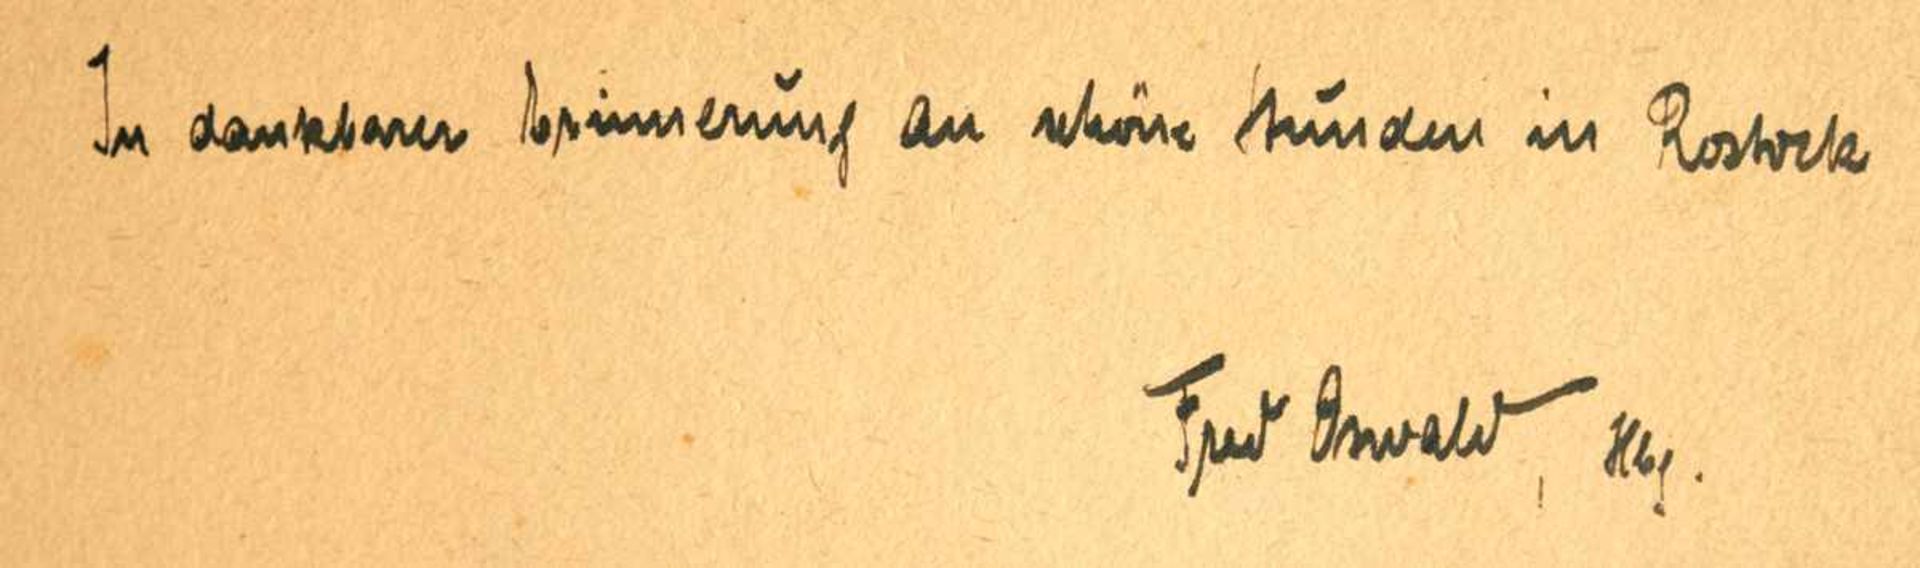 In dankbarer Erinnerung an schöne Stunden in Rostock
Fred Oswald, Hbg.